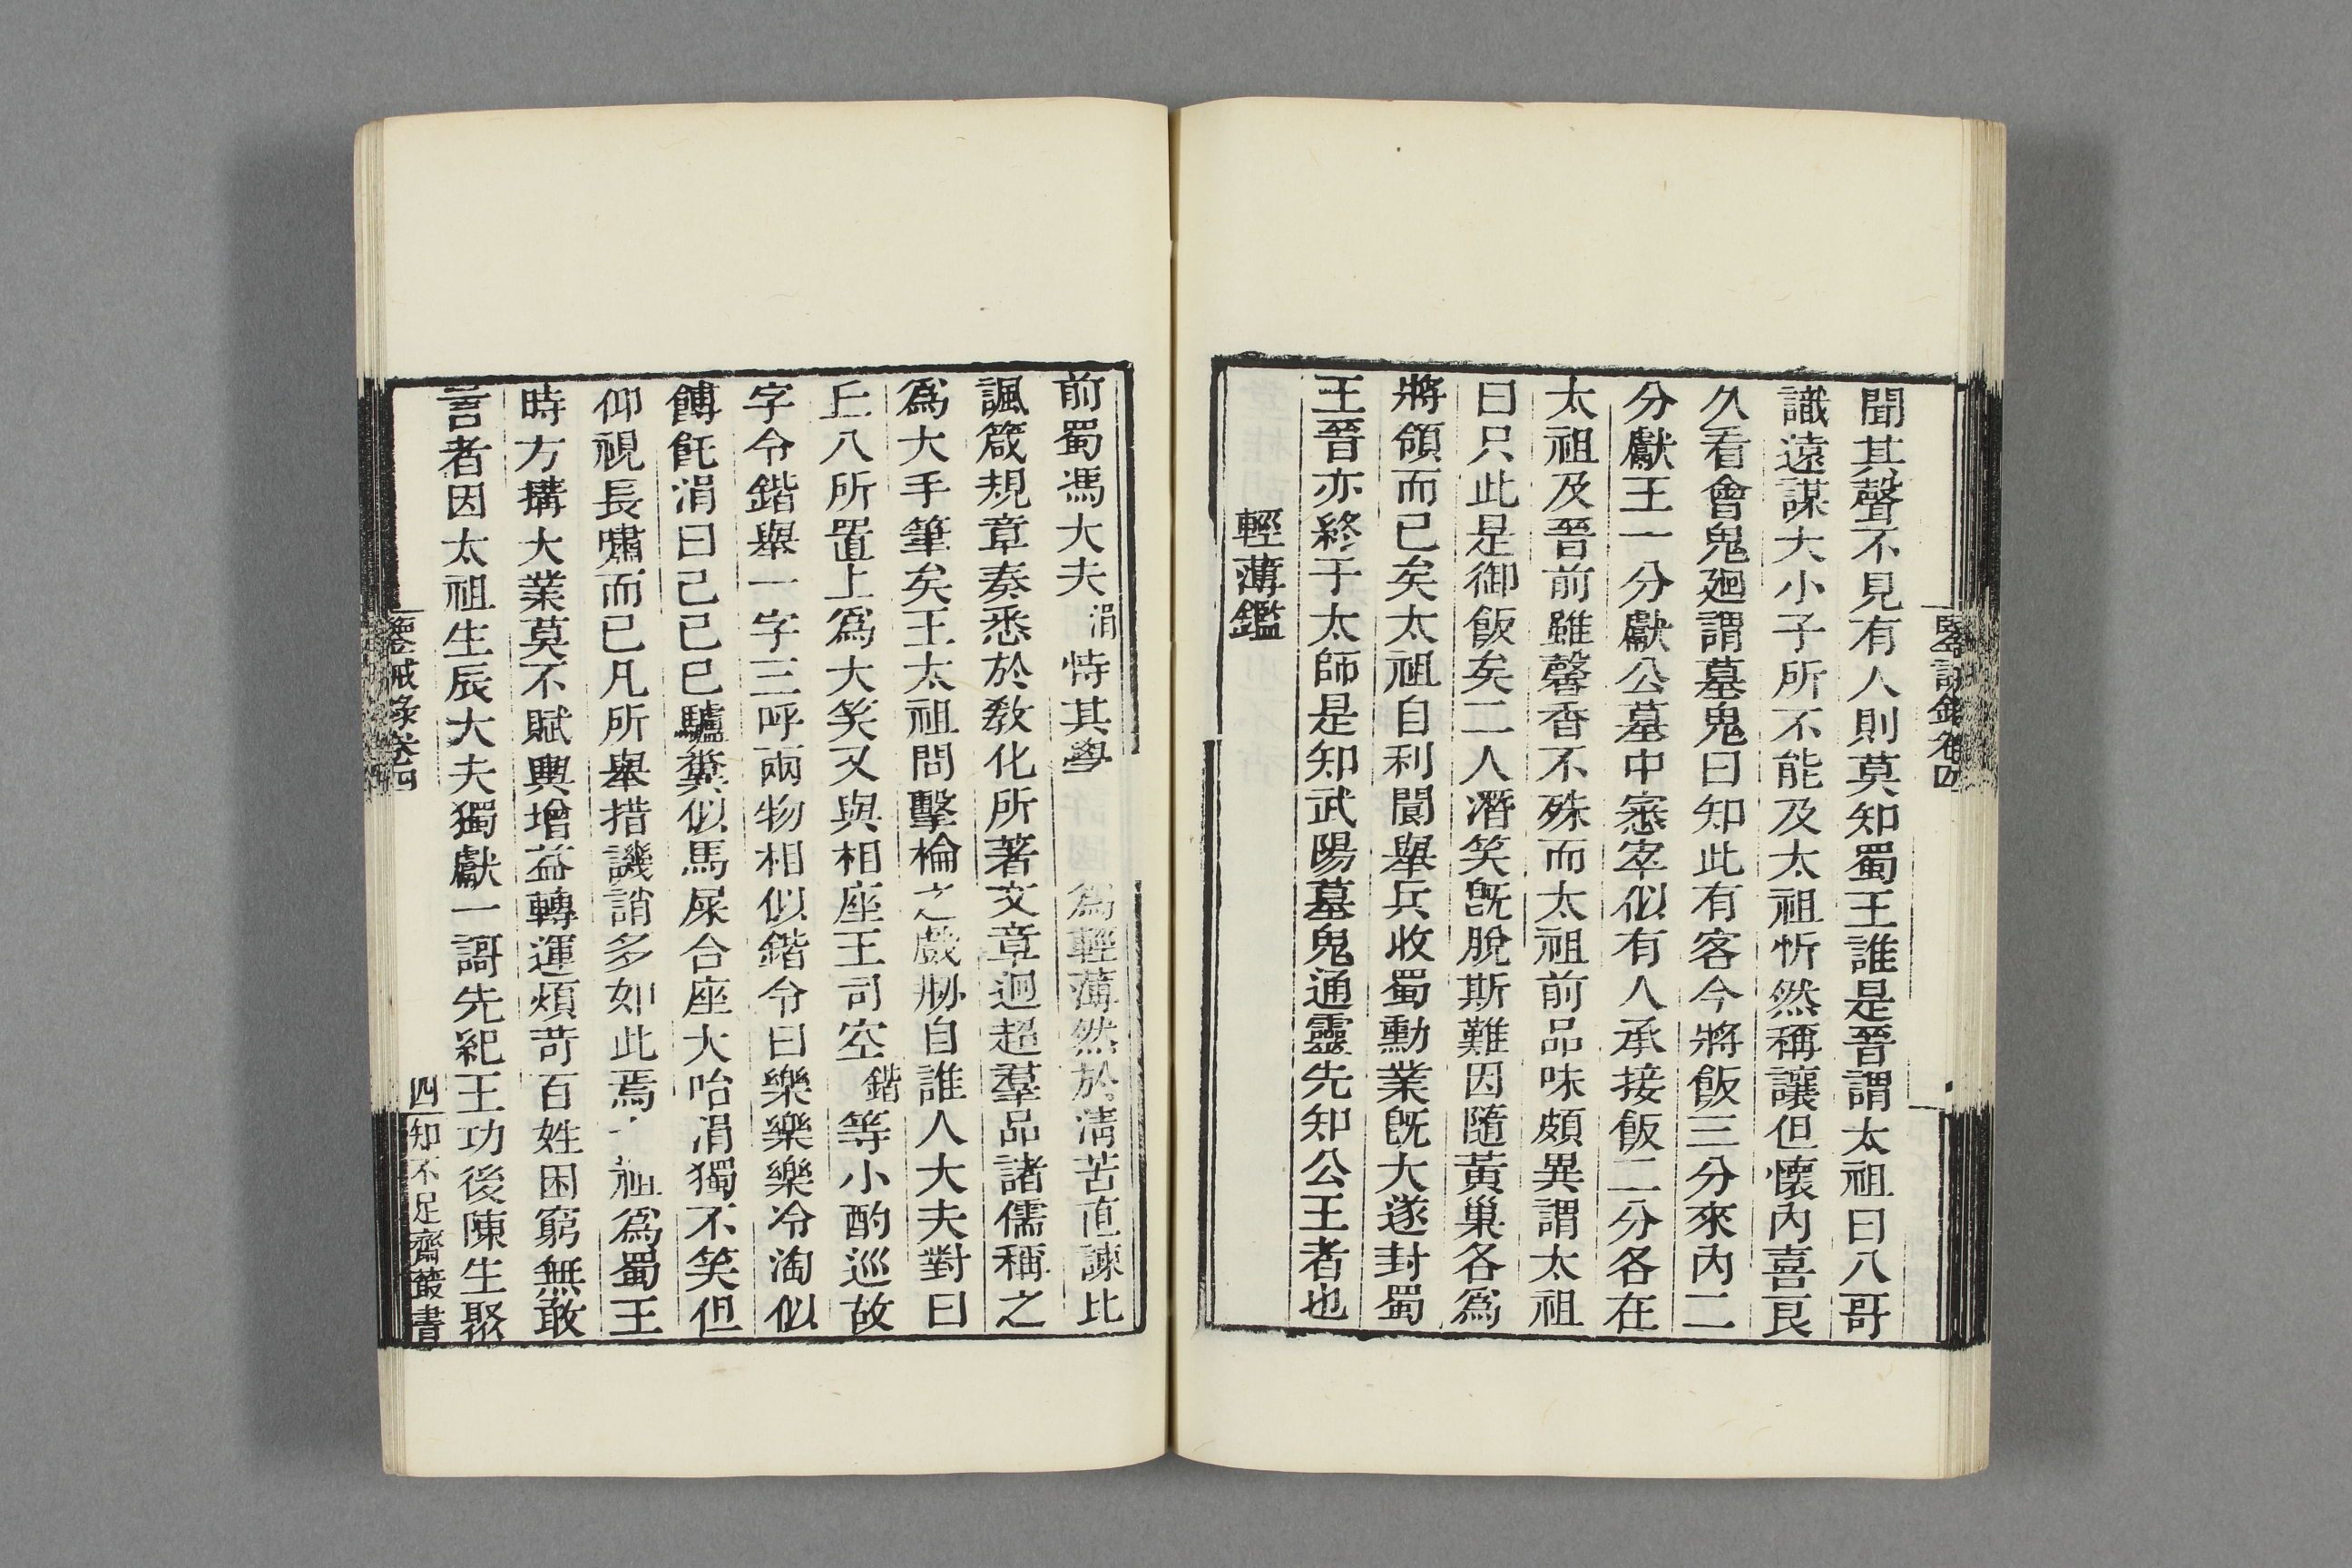 聞其聲不見有人則莫知蜀王誰是晉謂太祖曰八哥
識遠謀大小子所不能及太祖忻然稱讓但懷內喜艮
久看會鬼廻謂墓鬼曰知此有客今將飯三分來內二
分獻王一分獻公墓中窸窣似有人承接飯二分各在
太祖及晉前雖馨香不殊而太祖前品味頗異謂太祖
曰只此是御飯矣二人潛笑旣脫斯難因隨黃巢各爲
將領而已矣太祖自利閬舉兵收蜀勳業旣大遂封蜀
王晉亦終于太師是知武陽墓鬼通靈先知公王者也
輕薄鑑
前蜀馮大夫涓恃其學爲輕薄然於淸苦直諫比
諷箴規章奏悉於敎化所著文章迥超羣品諸儒稱之
爲大手筆矣王太祖問擊棆之戲刱自誰人大夫對曰
丘八所置上爲大笑又與相座王司空鍇等小酌巡故
字令鍇舉一字三呼兩物相似鍇令曰樂樂樂冷淘似
餺飥涓曰己已巳驢糞似馬屎合座大咍涓獨不笑但
仰視長嘯而已凡所舉措譏誚多如此焉祖爲蜀王
時方搆大業莫不賦輿增益轉運煩苛百姓困窮無敢
言者因太祖生辰大夫獨獻一謌先紀王功後陳生聚
鑒戒錄卷四
四
知不足齋叢書